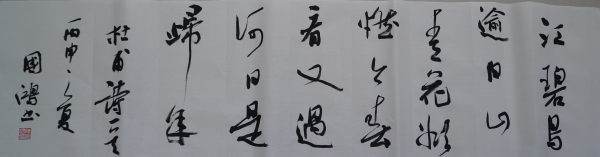 江碧鳥
逾白山
青花欲
燃今春
看又過
何日是
歸年
杜甫詩一首
丙申之夏
國鴻书